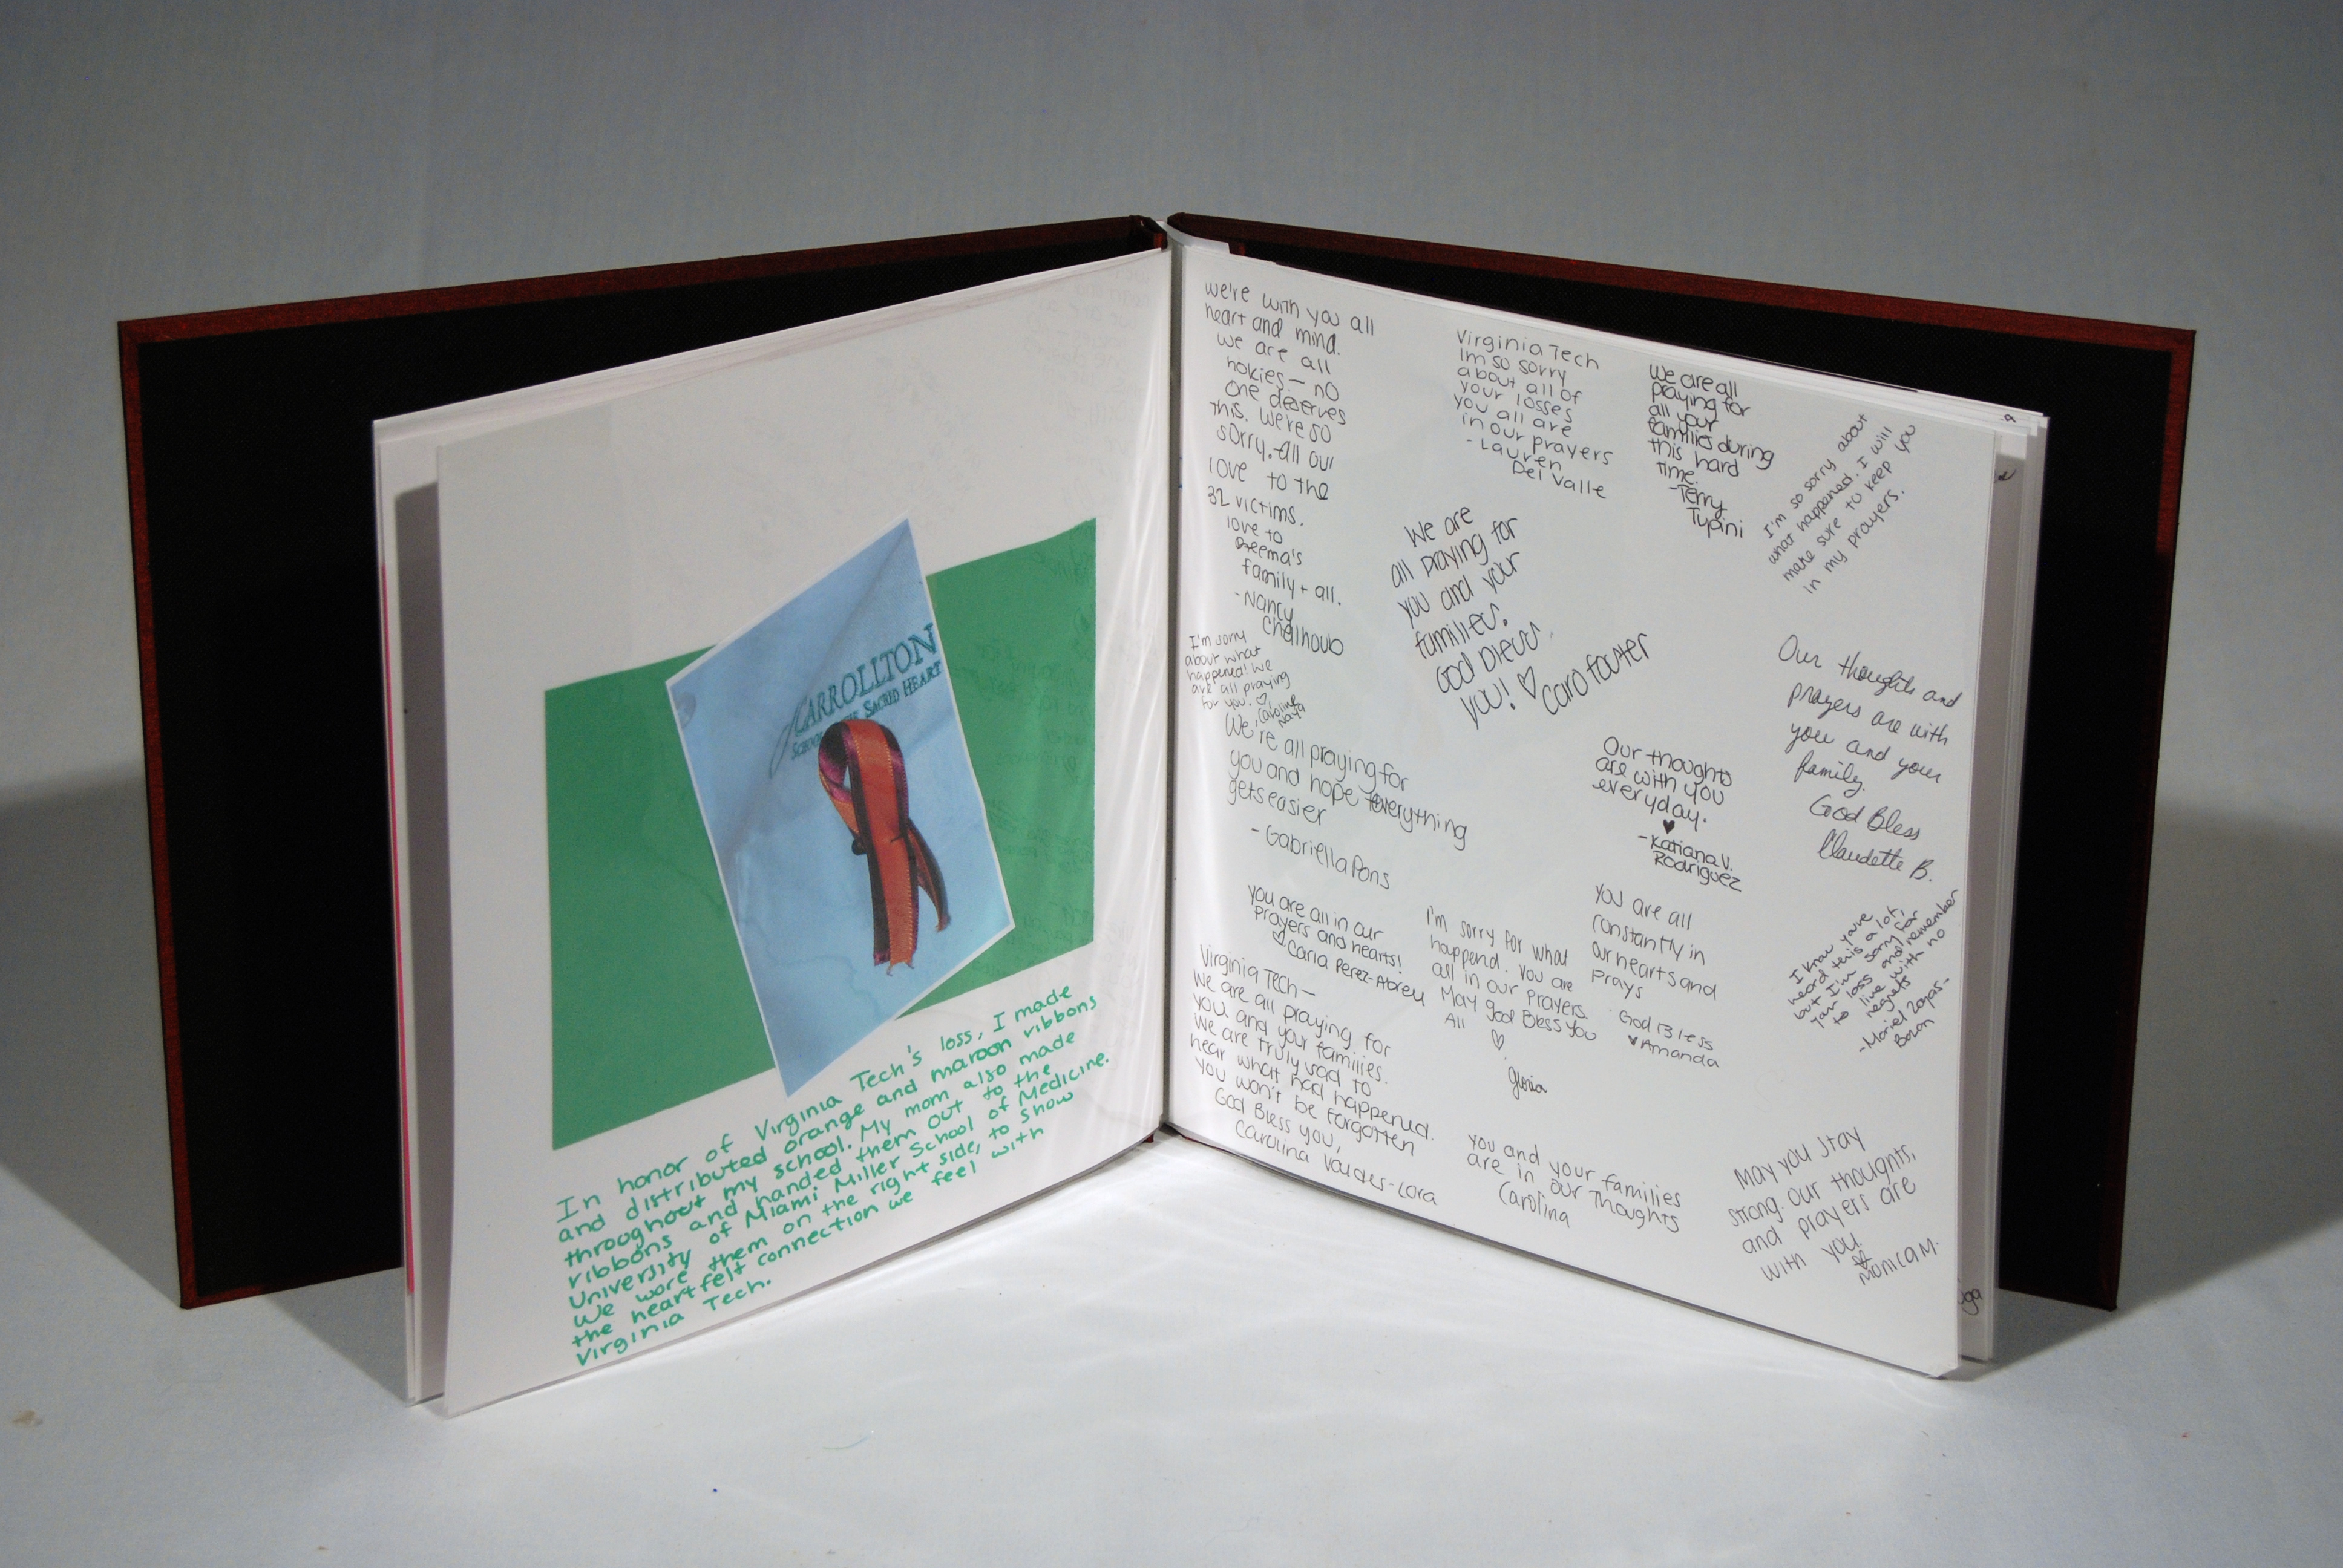 CARROLLTON
SCHOOL OF THE SACRED HEART
In honor of Virginia Tech's loss, I made
and distributed orange and maroon ribbons
throughout my school. My mom also made
ribbons and handed them out to the
University of Miami Miller School of Medicine.
We wore them on the right side, to show
the heartfelt connection we feel with
Virginia Tech.
we're with you all
heart and mind.
we are all
hokies - no
one deserves
this. We're so
sorry. All our
love to the
32 victims.
love to
Reema's
family + all.
- Nancy
Chalhoub
I'm sorry
about what
happened! We
are all praying
for you! ♡,
Caroline
Naya
We,
We're all praying for
you and hope everything
gets easier
- Gabriella Pons
you are all in our
Prayers and hearts!
♡ Carla Perez-Abreu
Virginia Tech -
We are all praying for
you and your families.
We are truly sad to
hear what had happened.
You won't be forgotten
God Bless you,
Carolina Valdes-Lora
Virginia Tech
Im so sorry
about all of
your losses
you all are
in our prayers
- Lauren
Del Valle
We are
all praying for
you and your
families.
God Bless
you! ♡ Caro Foster
I'm sorry for what
happend. You are
all in our Prayers.
May god Bless You
All
♡
Gloria
you and your families
are in our Thoughts
Carolina
We are all
praying for
all your
families during
this hard
time.
- Terry
Tupini
Our thoughts
are with you
everyday.
♥
- Katiana V.
Rodriguez
You are all
constantly in
our hearts and
prays
God Bless
♥ Amanda
I'm so sorry about
what happened. I will
make sure to keep you
in my prayers.
Our thoughts and
prayers are with
you and your
family.
God Bless
Claudette B.
I know you've
heard this a lot,
but I'm sorry for
your loss and remember
to live with no
regrets
- Mariel Zayas-
Bazan
May you stay
strong. Our thoughts,
and prayers are
with you.
♡
Monica M.